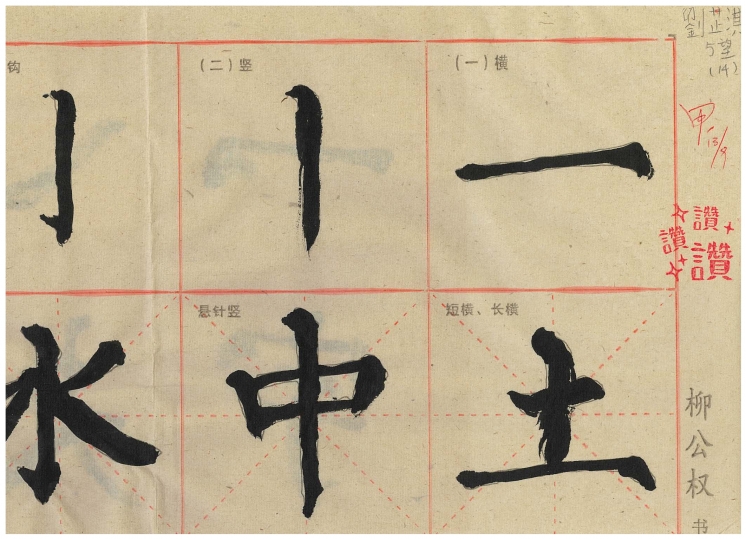 (14)
甲
讚
讚
讚
柳公权 书
(一)横
一
短横、长横
土
(二)竖
丨
悬针竖
中
钩
亅
水